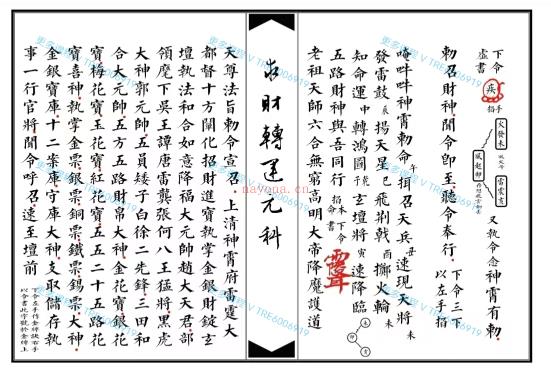 下令
虛書
敕召財神聞令卽至聽令奉行
下令三下
以左手指
又執令念神霄有勅
火發未
風起卯
雷震亥
手指
唵吽吽神霄勅命午揖召天兵丑速現天將未
發雷鼓辰揚天星已飛荆戟酉擲火輪未
知命運中轉鴻圖乾玄壇將寅速降臨
五路財神與吾同行
本下令
指命書
老祖天師六合無窮高明大帝降魔護道
求財轉運元科
天尊法旨勅令宣召上清神霄府雷霆大
都督十方闡化招財進寶執掌金銀財錠玄
壇執法和合如意降福大元帥趙大天君部
領魔下吳王譚唐雷龔張何八王猛將黑虎
大神郭元帥五員矮子白徐二先鋒三田和
合大元帥五方五路財帛大神金花寶銀花
寶梅花寶玉花寶紅花寶五五二十五路花
寶喜神執掌金銀票銅票鐵票錫票大神
金銀寶庫十二案庫守庫大神支取儲存執
事一行官將聞令呼召速至壇前
下令左手作金縴訣右手
以令書此字㪣於金縴上
更多課程 V TRE6006919
nayona.cn